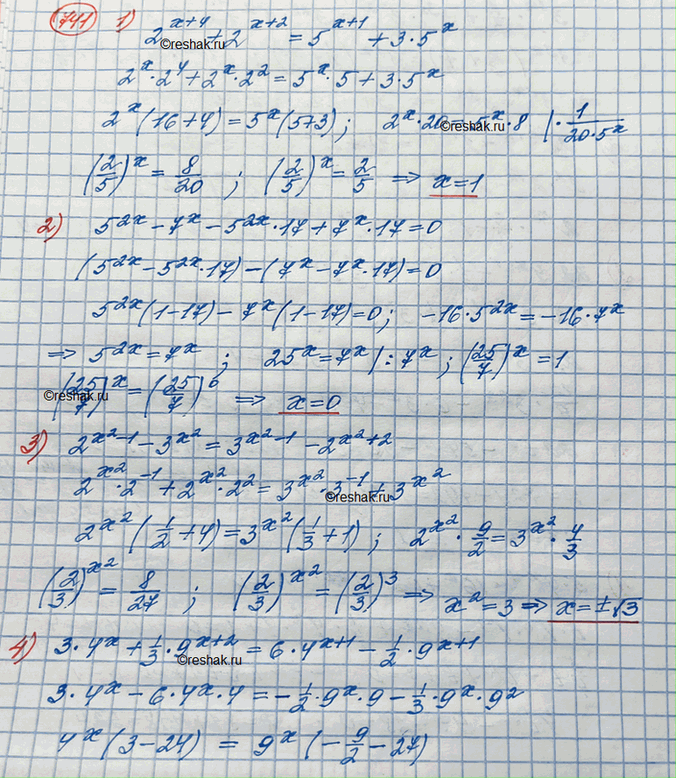 741 1) 2^(x+4) + 2^(x+2) = 5^(x+1) + 3·5^x
©reshak.ru
2^x·2^4 + 2^x·2^2 = 5^x·5 + 3·5^x
2^x(16+4) = 5^x(5+3) ; 2^x·20 = 5^x·8 |· 1/(20·5^x)
©reshak.ru
(2/5)^x = 8/20 ; (2/5)^x = 2/5 ⇒ x=1
2) 5^(2x) - 7^x - 5^(2x)·17 + 7^x·17 = 0
(5^(2x) - 5^(2x)·17) - (7^x - 7^x·17) = 0
5^(2x)(1-17) - 7^x(1-17) = 0 ; -16·5^(2x) = -16·7^x
⇒ 5^(2x) = 7^x ; 25^x = 7^x |: 7^x ; (25/7)^x = 1
(25/7)^x = (25/7)^0 ⇒ x=0
©reshak.ru
3) 2^(x^2-1) - 3^(x^2) = 3^(x^2-1) - 2^(x^2+2)
2^(x^2)·2^(-1) + 2^(x^2)·2^2 = 3^(x^2)·3^(-1) + 3^(x^2)
©reshak.ru
2^(x^2)(1/2+4) = 3^(x^2)(1/3+1) ; 2^(x^2)·9/2 = 3^(x^2)·4/3
(2/3)^(x^2) = 8/27 ; (2/3)^(x^2) = (2/3)^3 ⇒ x^2 = 3 ⇒ x = ±√3
4) 3·4^x + 1/3·9^(x+2) = 6·4^(x+1) - 1/2·9^(x+1)
©reshak.ru
3·4^x - 6·4^x·4 = -1/2·9^x·9 - 1/3·9^x·9^2
4^x(3-24) = 9^x(-9/2-27)